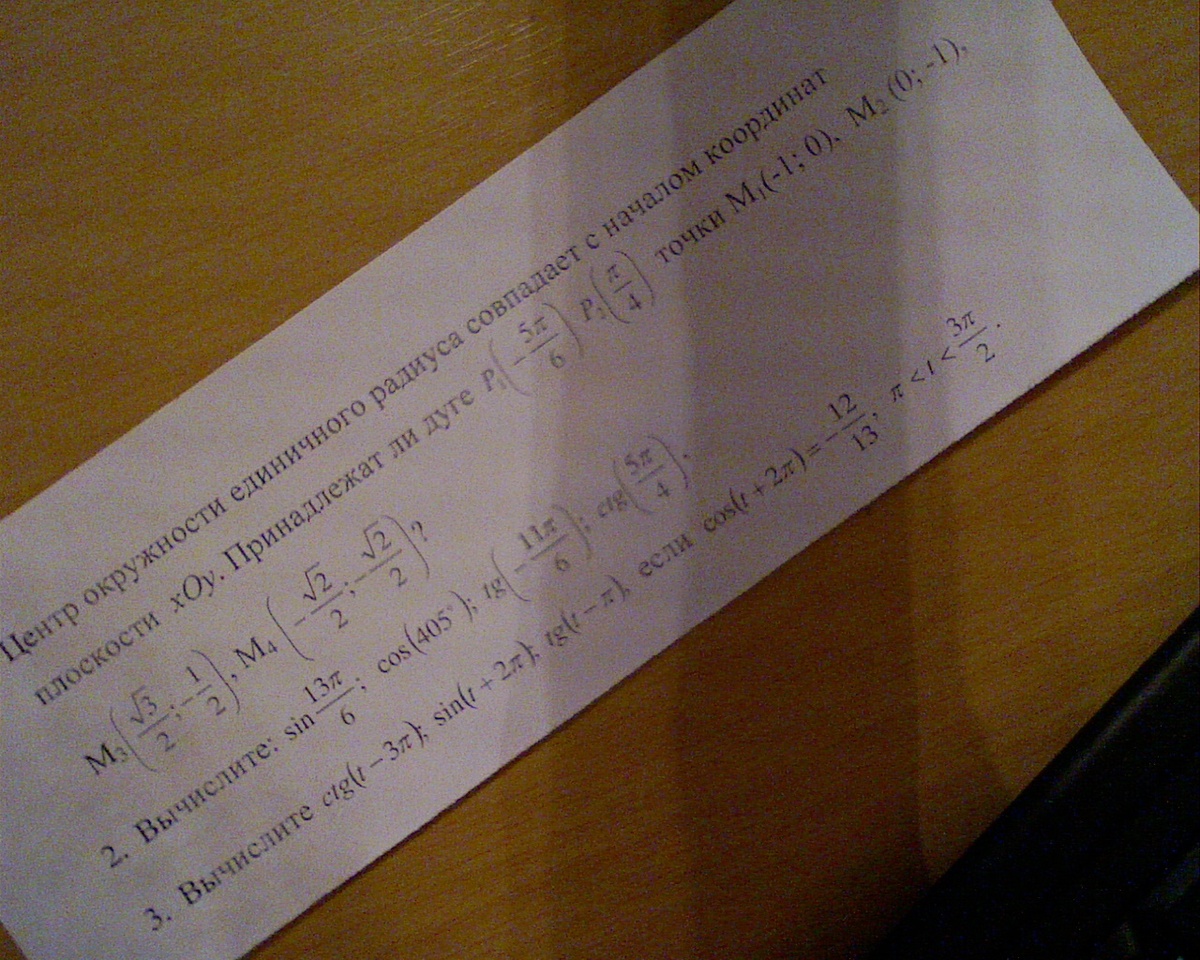 Центр окружности единичного радиуса совпадает с началом координат
плоскости xOy. Принадлежат ли дуге P₁(-5π/6) P₂(π/4) точки M₁(-1; 0), M₂(0; -1),
M₃(√3/2; -1/2), M₄(-√2/2; -√2/2)?
2. Вычислите: sin 13π/6; cos(405°); tg(-11π/6); ctg(5π/4).
3. Вычислите ctg(t − 3π); sin(t + 2π); tg(t − π), если cos(t + 2π) = -12/13, π < t < 3π/2.